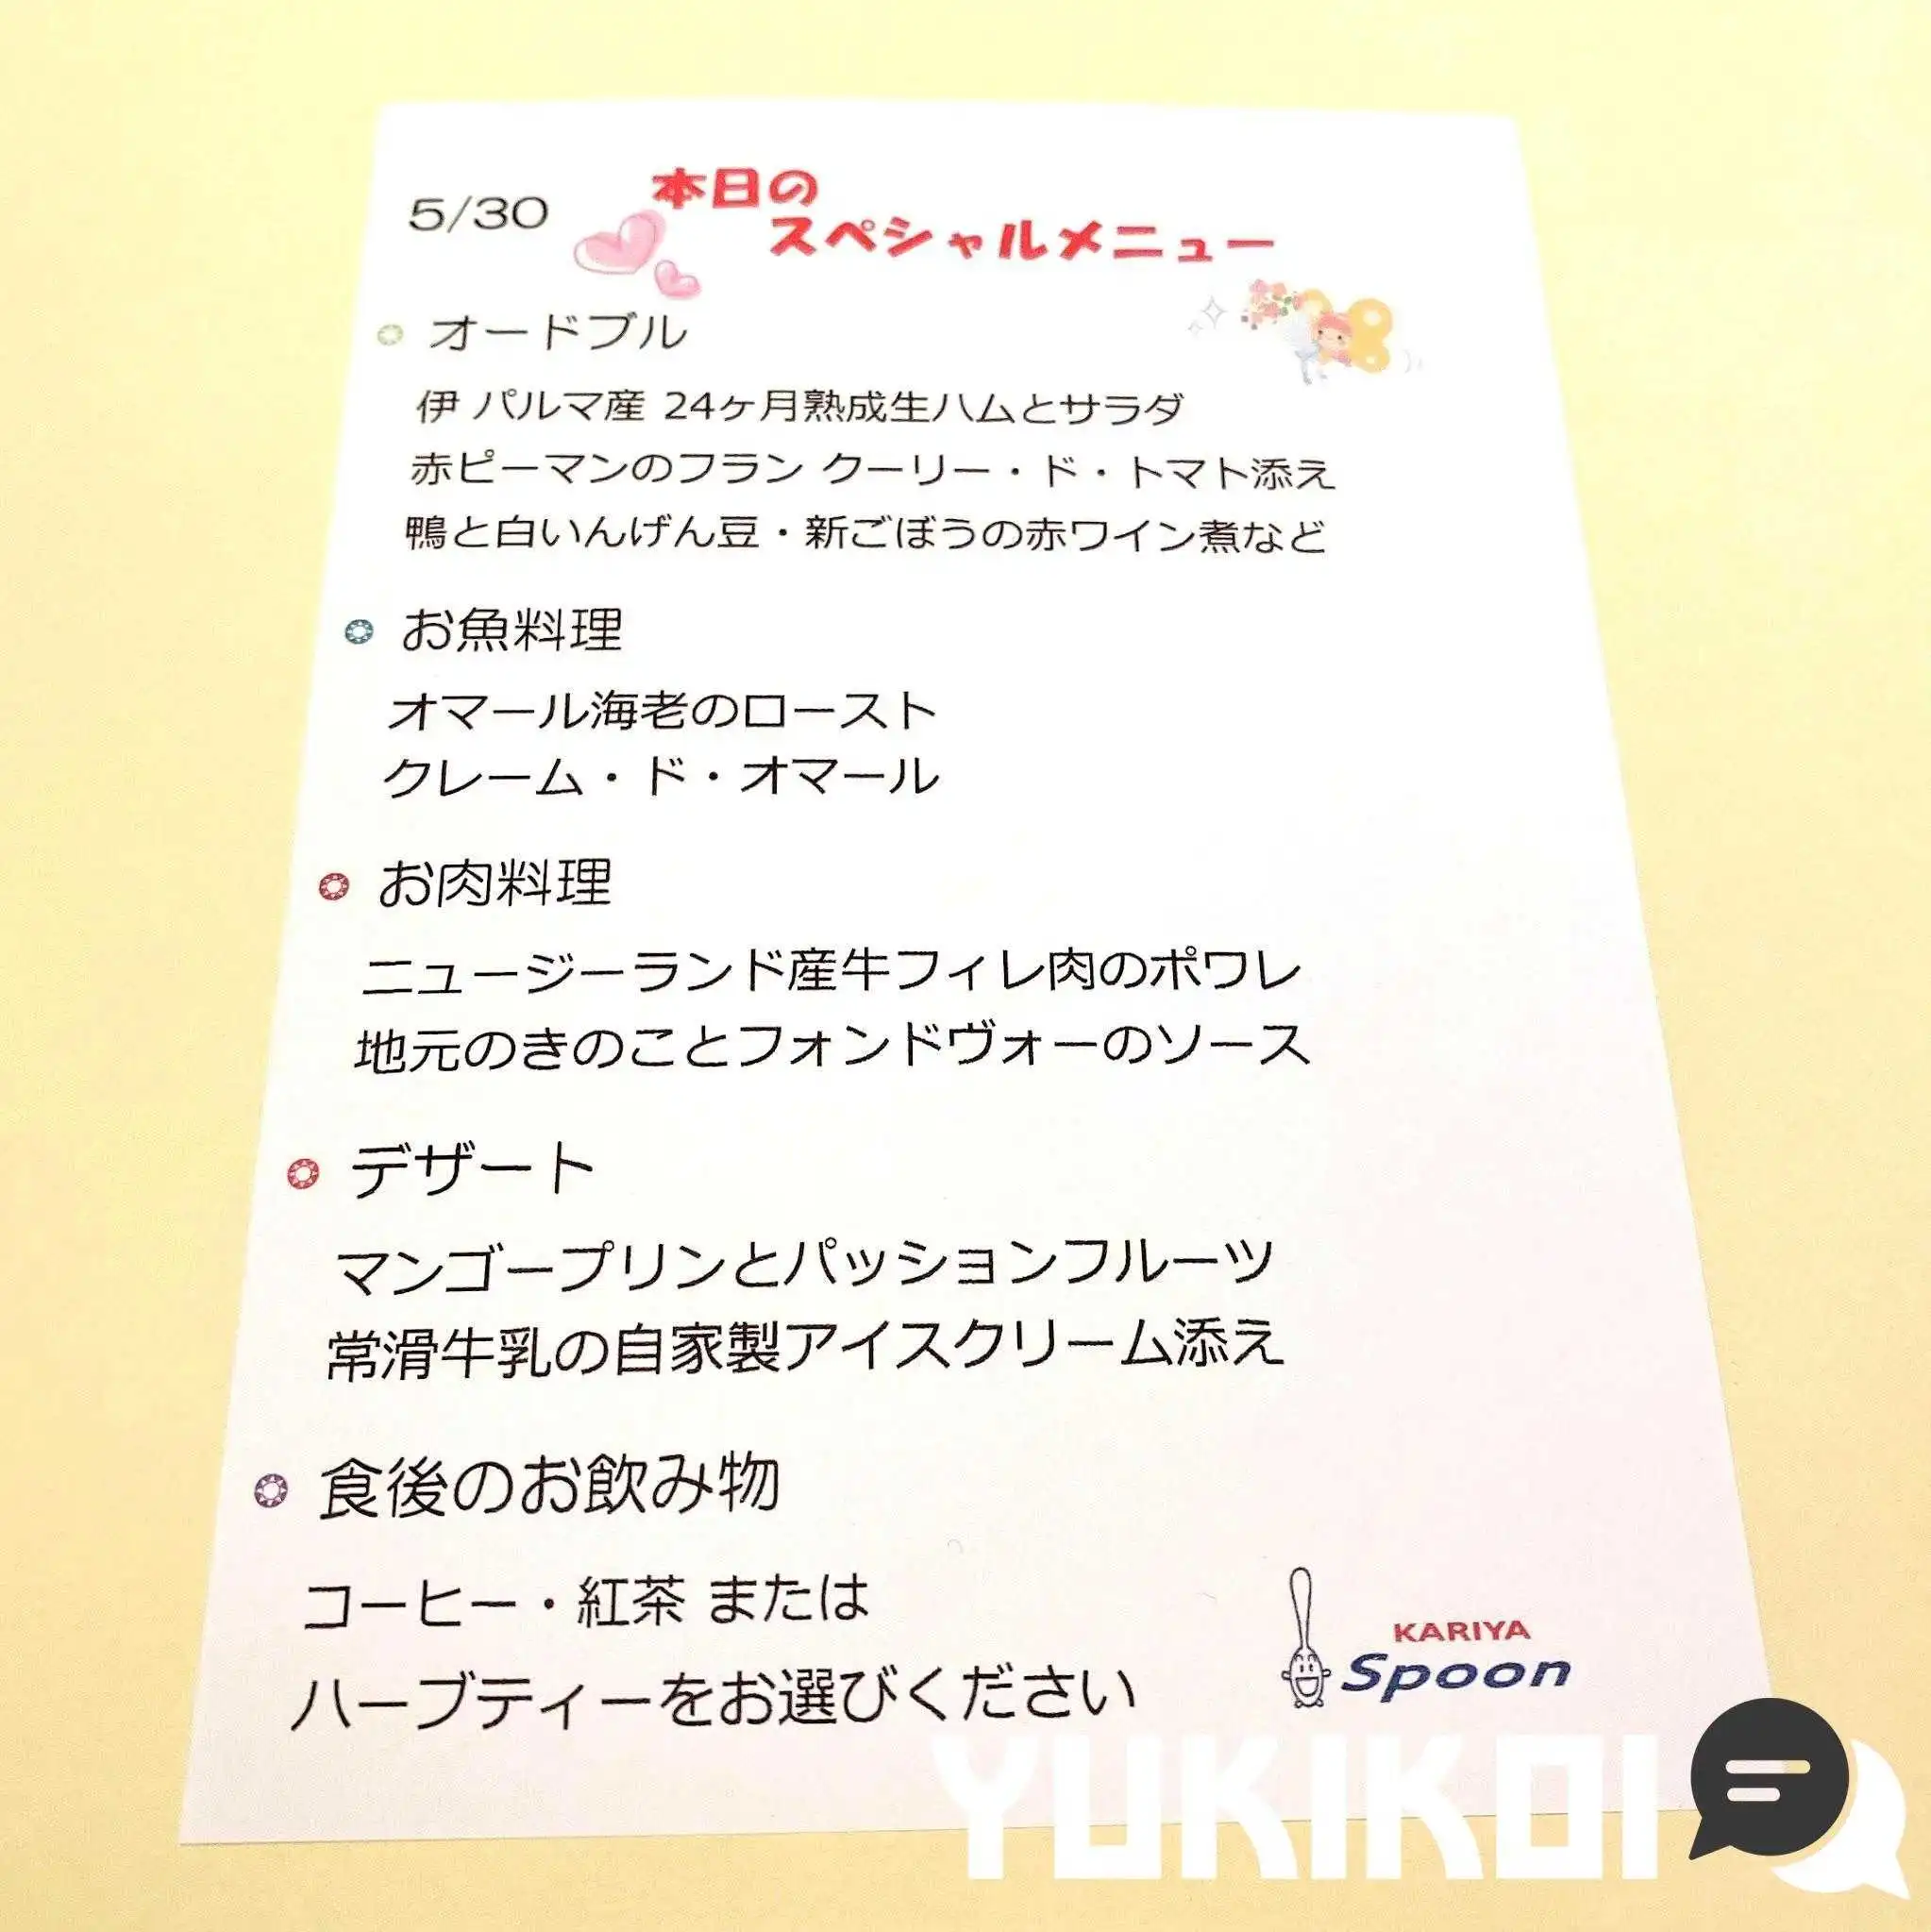 5/30
本日の
スペシャルメニュー
オードブル
伊 パルマ産 24ヶ月熟成生ハムとサラダ
赤ピーマンのフラン クーリー・ド・トマト添え
鴨と白いんげん豆・新ごぼうの赤ワイン煮など
お魚料理
オマール海老のロースト
クレーム・ド・オマール
お肉料理
ニュージーランド産牛フィレ肉のポワレ
地元のきのことフォンドヴォーのソース
デザート
マンゴープリンとパッションフルーツ
常滑牛乳の自家製アイスクリーム添え
食後のお飲み物
コーヒー・紅茶 または
ハーブティーをお選びください
KARIYA
Spoon
YUKIKOI